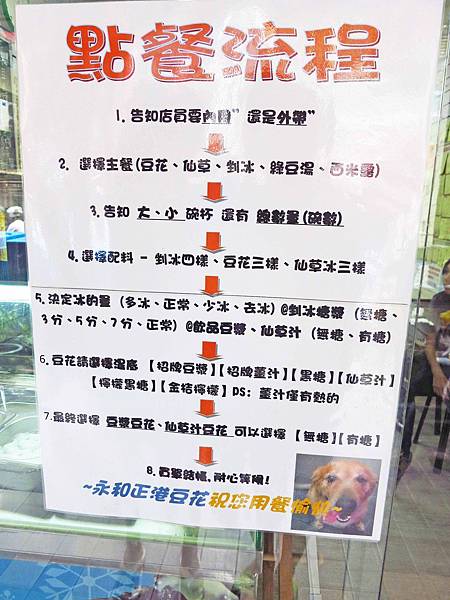 點餐流程
1. 告知店員要"內用" 還是"外帶"
2. 選擇主餐(豆花、仙草、剉冰、綠豆湯、西米露)
3. 告知 大、小 碗杯 還有 總數量(碗數)
4. 選擇配料 - 剉冰四樣、豆花三樣、仙草冰三樣
5. 決定冰的量 (多冰、正常、少冰、去冰) @剉冰糖漿 (無糖、
3分、5分、7分、正常) @飲品豆漿、仙草汁 (無糖、有糖)
6. 豆花請選擇湯底 【招牌豆漿】【招牌薑汁】【黑糖】【仙草汁】
【檸檬黑糖】【金桔檸檬】 PS: 薑汁僅有熱的
7. 最終選擇 豆漿豆花、仙草汁豆花 可以選擇 【無糖】【有糖】
8. 買單結帳、耐心等候!
~永和正港豆花祝您用餐愉快~